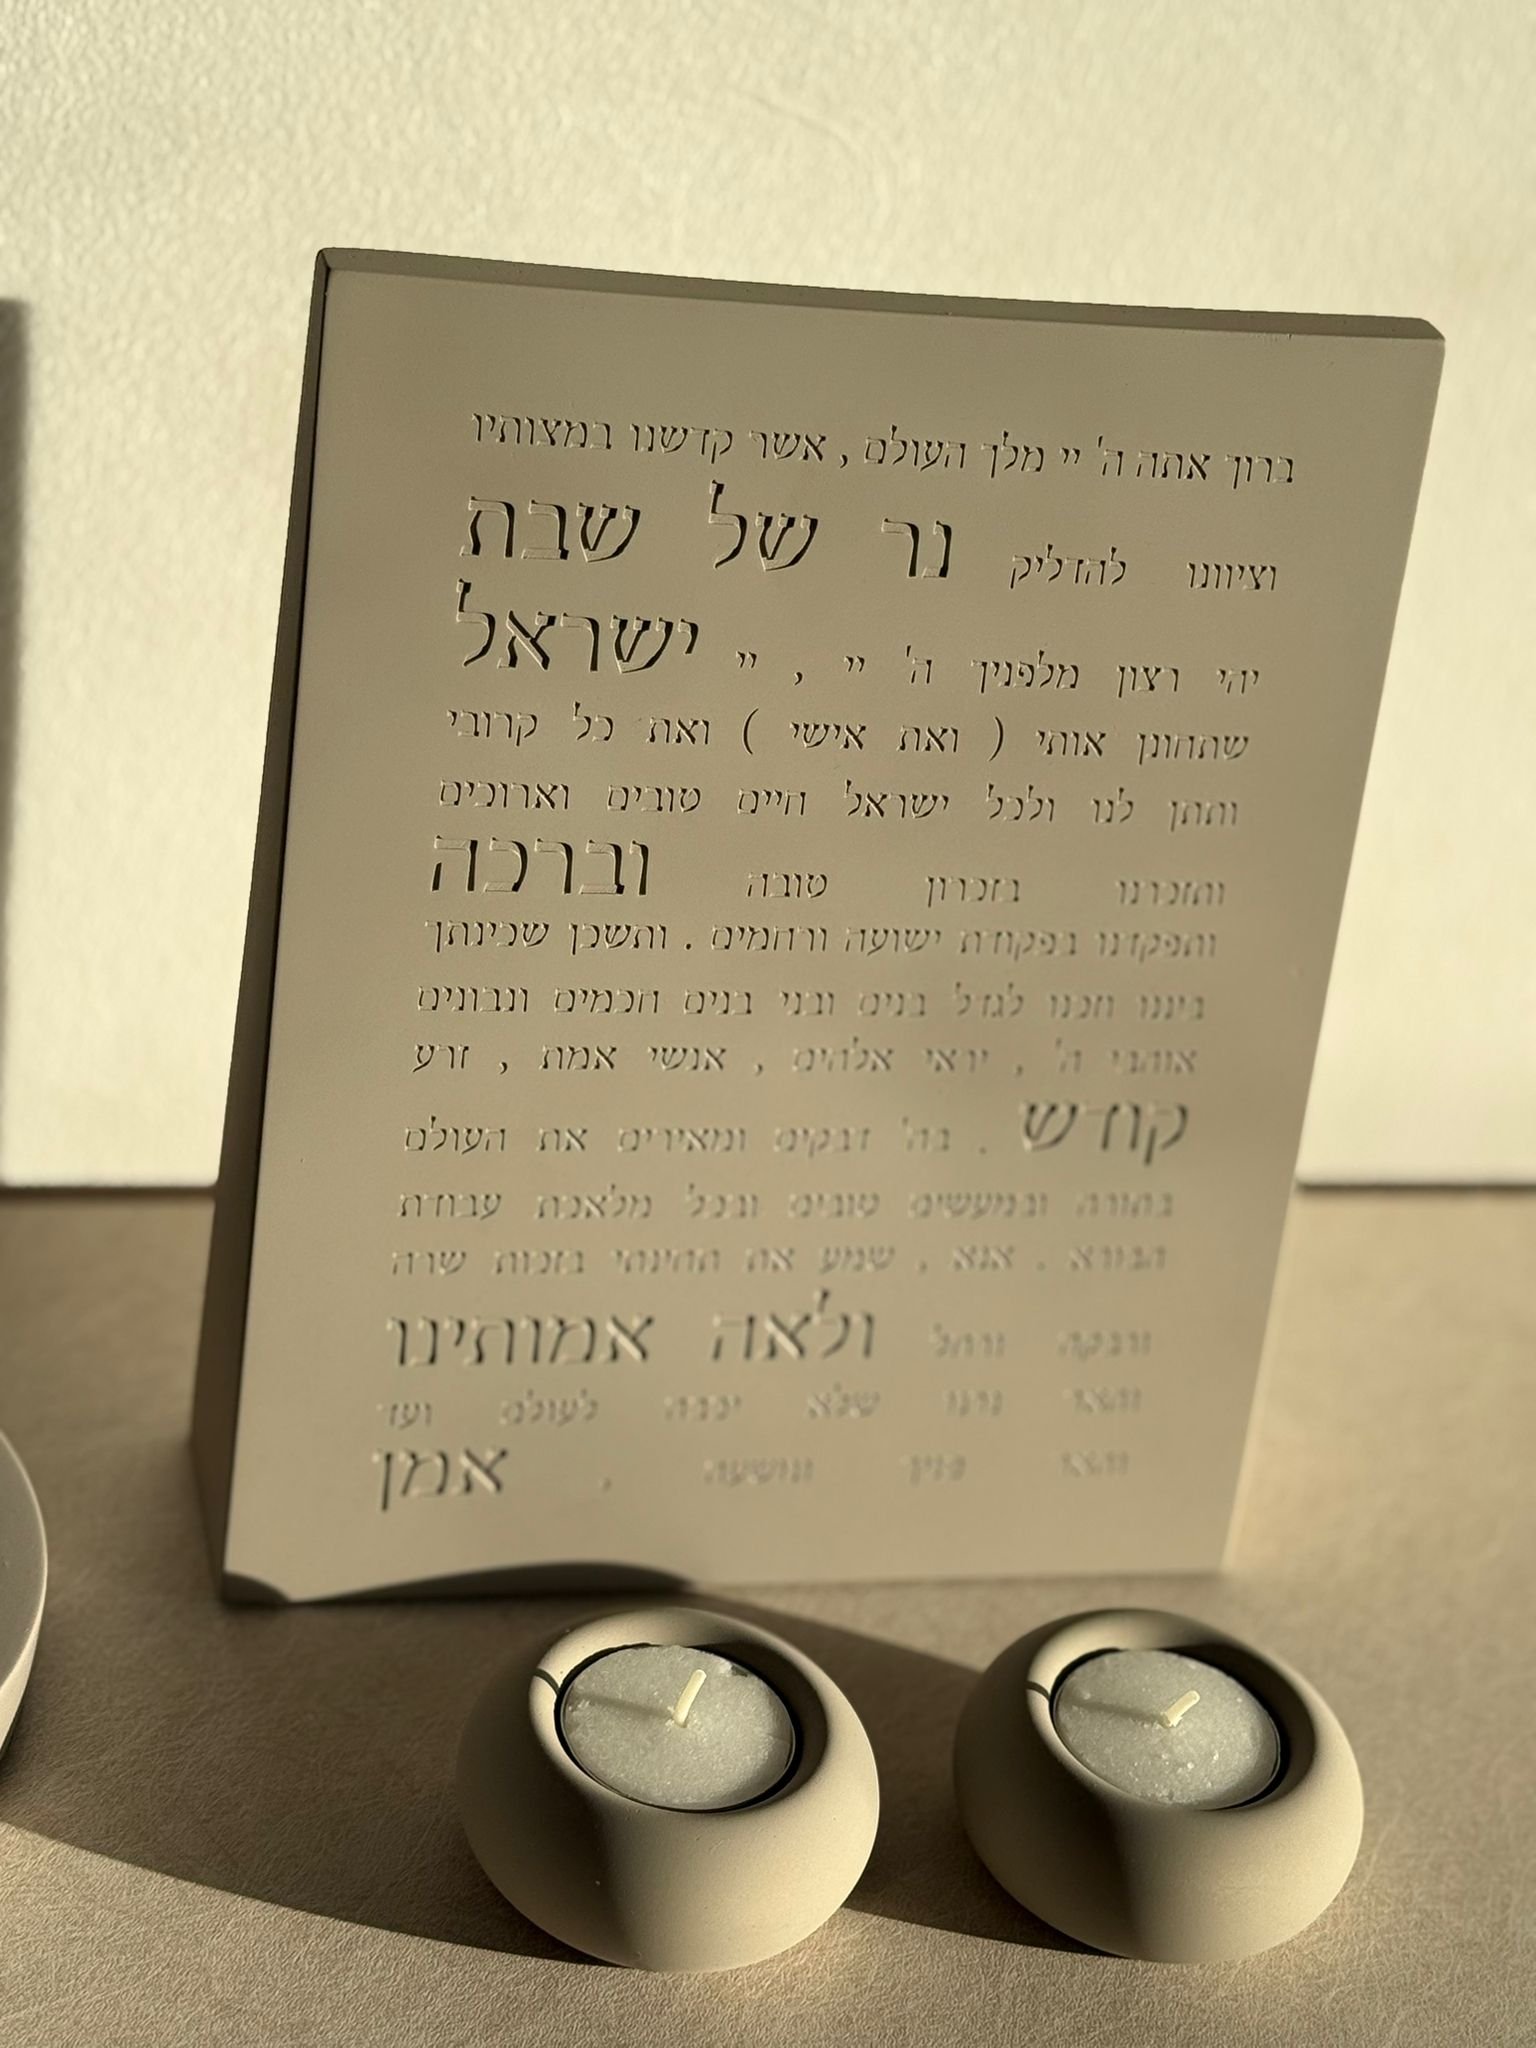 ברוך אתה ה' יי מלך העולם, אשר קדשנו במצותיו
וציוונו להדליק נר של שבת
יהי רצון מלפניך ה' יי , יי ישראל
שתחונן אותי ( ואת אישי ) ואת כל קרובי
ותתן לנו ולכל ישראל חיים טובים וארוכים
ותזכרנו בזכרון טובה וברכה
ותפקדנו בפקודת ישועה ורחמים . ותשכן שכינתך
ביננו וזכנו לגדל בנים ובני בנים חכמים ונבונים
אוהבי ה' , יראי אלהים , אנשי אמת , זרע
קודש . בה' דבקים ומאירים את העולם
בתורה ובמעשים טובים ובכל מלאכת עבודת
הבורא . אנא , שמע את תחינתי בזכות שרה
ורבקה ורחל ולאה אמותינו
והאר נרנו שלא יכבה לעולם ועד
והאר פניך ונושעה . אמן